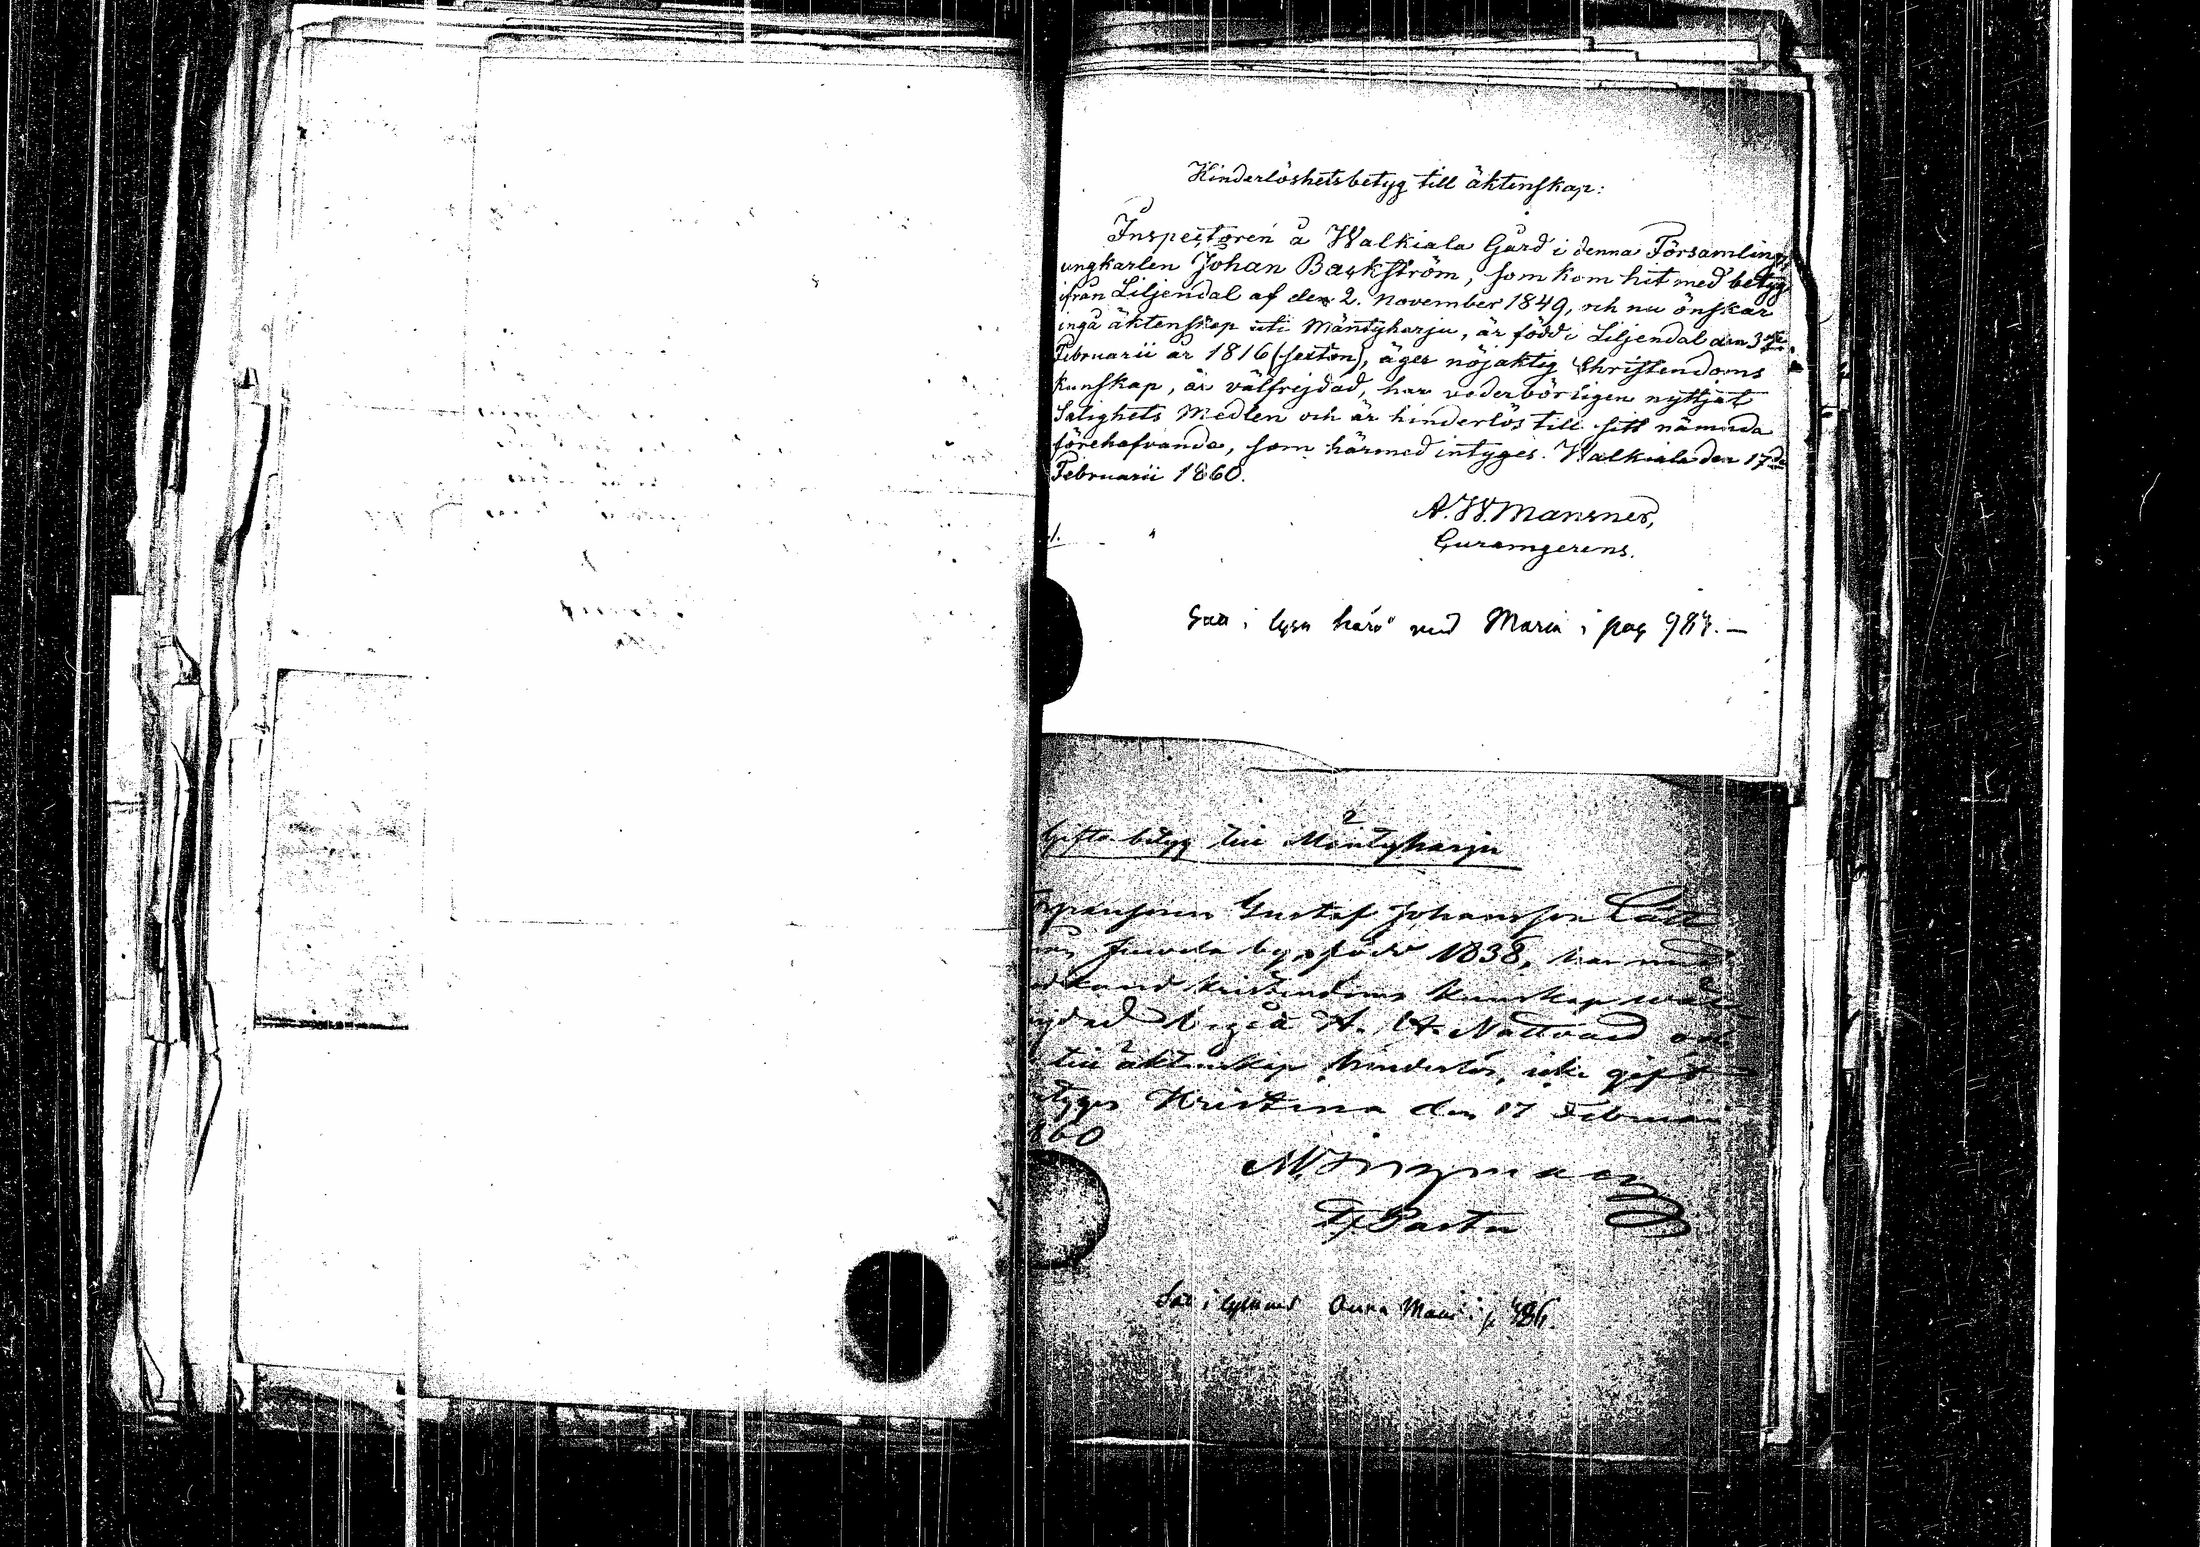 Hinderlöshetsbetyg till äktenskap:
Inspectoren å Walkiala Gård i denna Församling,
ungkarlen Johan Backström, som kom hit med betyg
ifrån Liljendal af den 2. November 1849, och nu önskar
ingå äktenskap uti Mäntyharju, är född i Liljendal den 3dje
Februarii år 1816 (sexton), äger nöjaktig Christendoms
kunskap, är välfrejdad, har vederbörligen nyttjat
Salighets Medlen och är hinderlös till sitt nämnda
förehafvande, som härmed intygas. Walkiala den 17de
Februarii 1860.
A. W. Mansner,
Curamgerens.
i lysn med Maria i pag
2
Gifto betyg till Mäntyharju
Gustaf Johansson
by, född 1838, har
kristendoms kunskap
begå H. H. Nattvard och
till äktenskap hinderlös, icke gift
Kristina den 17 Februari
860
Pastor
i Anna Maria i p